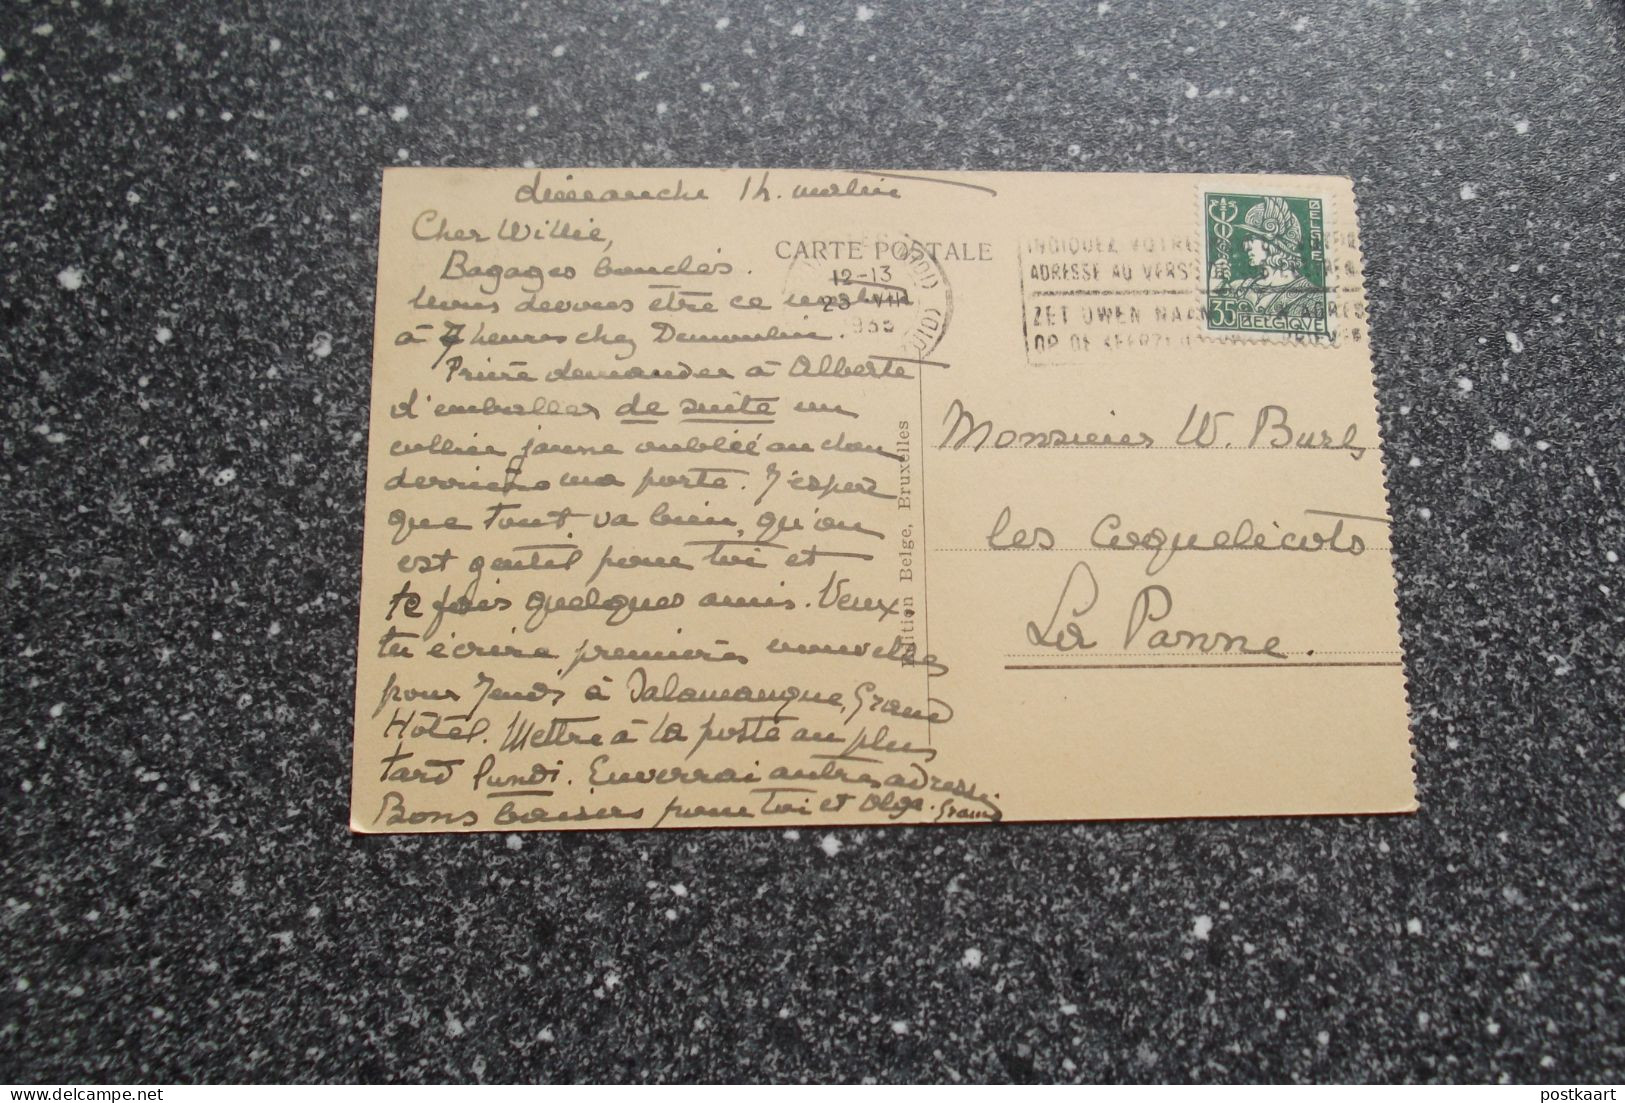 dimanche 1 h. matin
Cher Willie,
Bagages bouclés.
Nous devons être ce
à 7 heures chez
Prière demander à Alberte
d'emballer de suite un
collier jaune oublié au clou
derrière ma porte. J'espère
que tout va bien, qu'on
est gentil pour toi et
te fais quelques amis. Veux
tu écrire premières nouvelles
pour Jeudi à Salamanque, Grand
Hôtel. Mettre à la poste au plus
tard lundi. Enverrai autres adresses.
Bons baisers pour toi et Olga.
CARTE POSTALE
12-13
VII
INDIQUEZ VOTRE
ADRESSE AU VERSO
ZET UWEN NAAM ADRES
OP DE KEERZIJDE
BELGIE
35c
BELGIQVE
Edition Belge, Bruxelles
Monsieur W. Burls
les Coquelicots
La Panne.
delcampe.net
postkaart